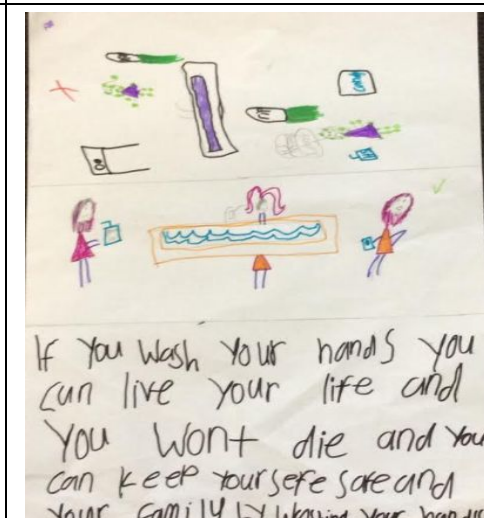 If You Wash Your hands you
can live your life and
You Wont die and You
can keep yoursefe safe and
your family by Washing Your hands